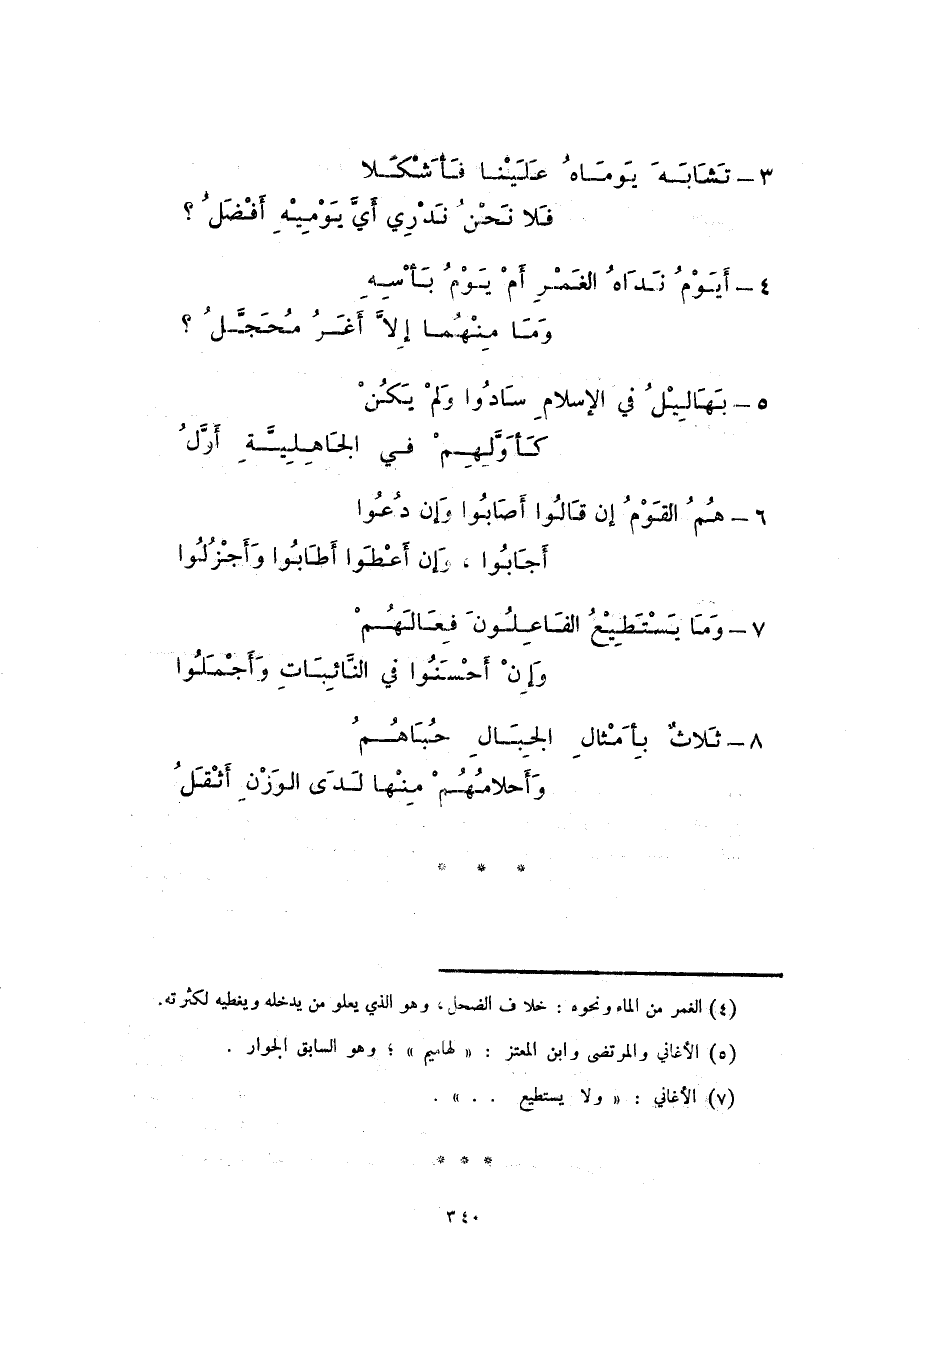 ٣ – تَشَابَهَ يَومَاهُ عَلَيْنا فَأَشْكَلا
فَلا نَحْنُ نَدْرِي أَيَّ يَوْمِيْهِ أَفْضَلُ ؟
٤ – أَيَوْمُ نَدَاهُ الغَمْرِ أَمْ يَوْمُ بَأْسِهِ
وَمَا مِنْهُما إِلاَّ أَغَرُ مُحَجَّلُ ؟
٥ – بَهَالِيْلُ في الإسلامِ سَادُوا وَلَمْ يَكُنْ
كَأَوَّلِهِمْ في الجَاهِلِيَّةِ أَرَّلُ
٦ – هُمُ القَوْمُ إن قَالُوا أصَابُوا وَإن دُعُوا
أجَابُوا ، وَإن أَعْطَوا أطَابُوا وَأَجْزَلُوا
٧ – وَمَا يَسْتَطِيْعُ الفَاعِلُونَ فِعَالَهُمْ
وَإِنْ أَحْسَنُوا في النَّائِبَاتِ وَأَجْمَلُوا
٨ – ثَلاثٌ بِأَمْثالِ الجِبَالِ حُبَاهُمُ
وَأَحلامُهُمْ مِنْها لَدَى الوَزْنِ أَثْقَلُ
* * *
(٤) الغمر من الماء ونحوه : خلاف الضحل ، وهو الذي يعلو من يدخله ويغطيه لكثرته .
(٥) الأغاني والمرتضى وابن المعتز : « لهاميم » ؛ وهو السابق الجوار .
(٧) الأغاني : « ولا يستطيع . . » .
* * *
٣٤٠